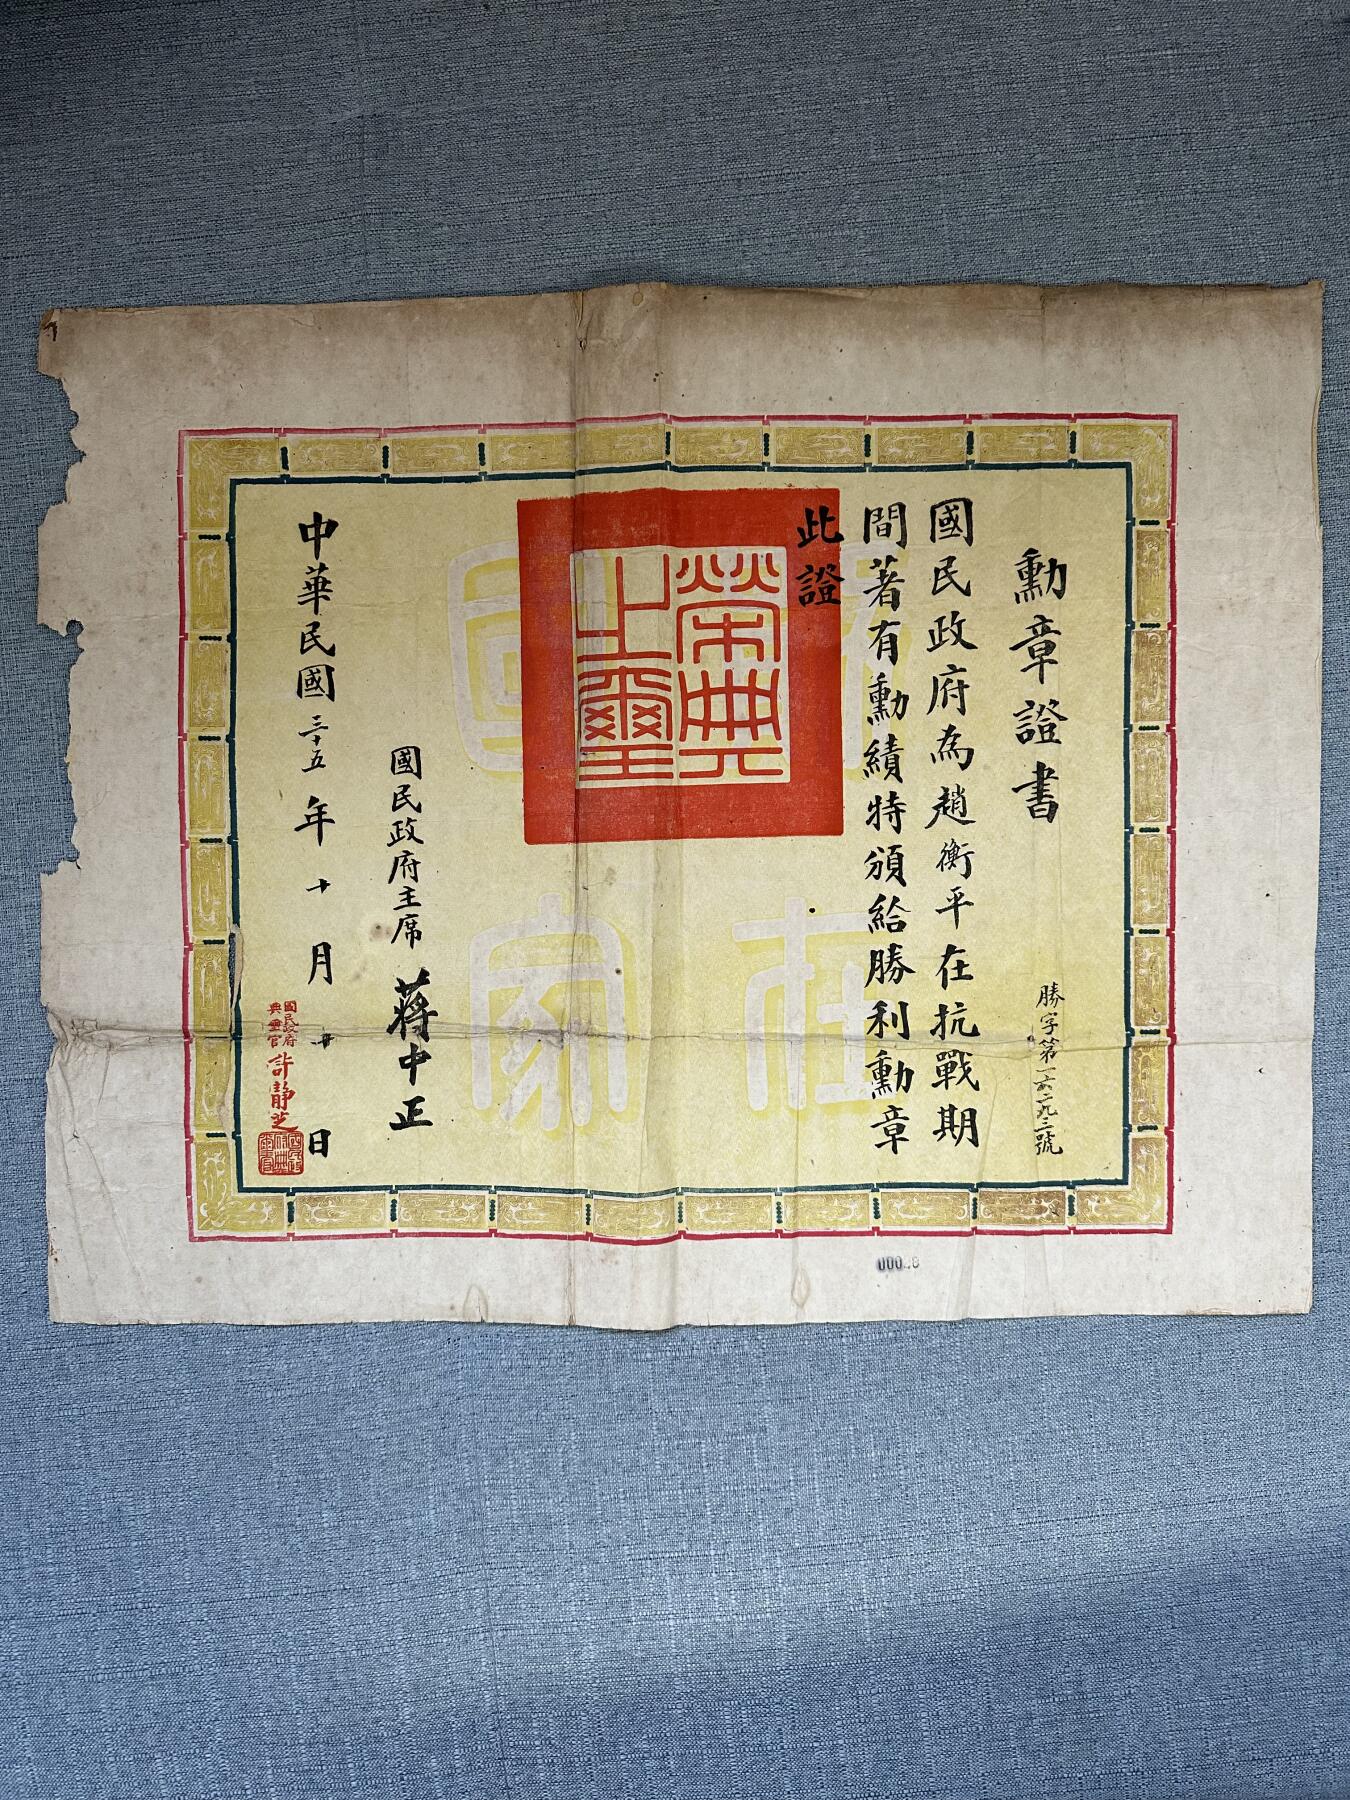 勳章證書
勝字第一六二九三號
國民政府為趙衡平在抗戰期
間著有勳績特頒給勝利勳章
此證
榮典
之璽
國民政府主席 蔣中正
中華民國三十五年十月十日
國民政府
典璽官 許靜芝
在
國
家